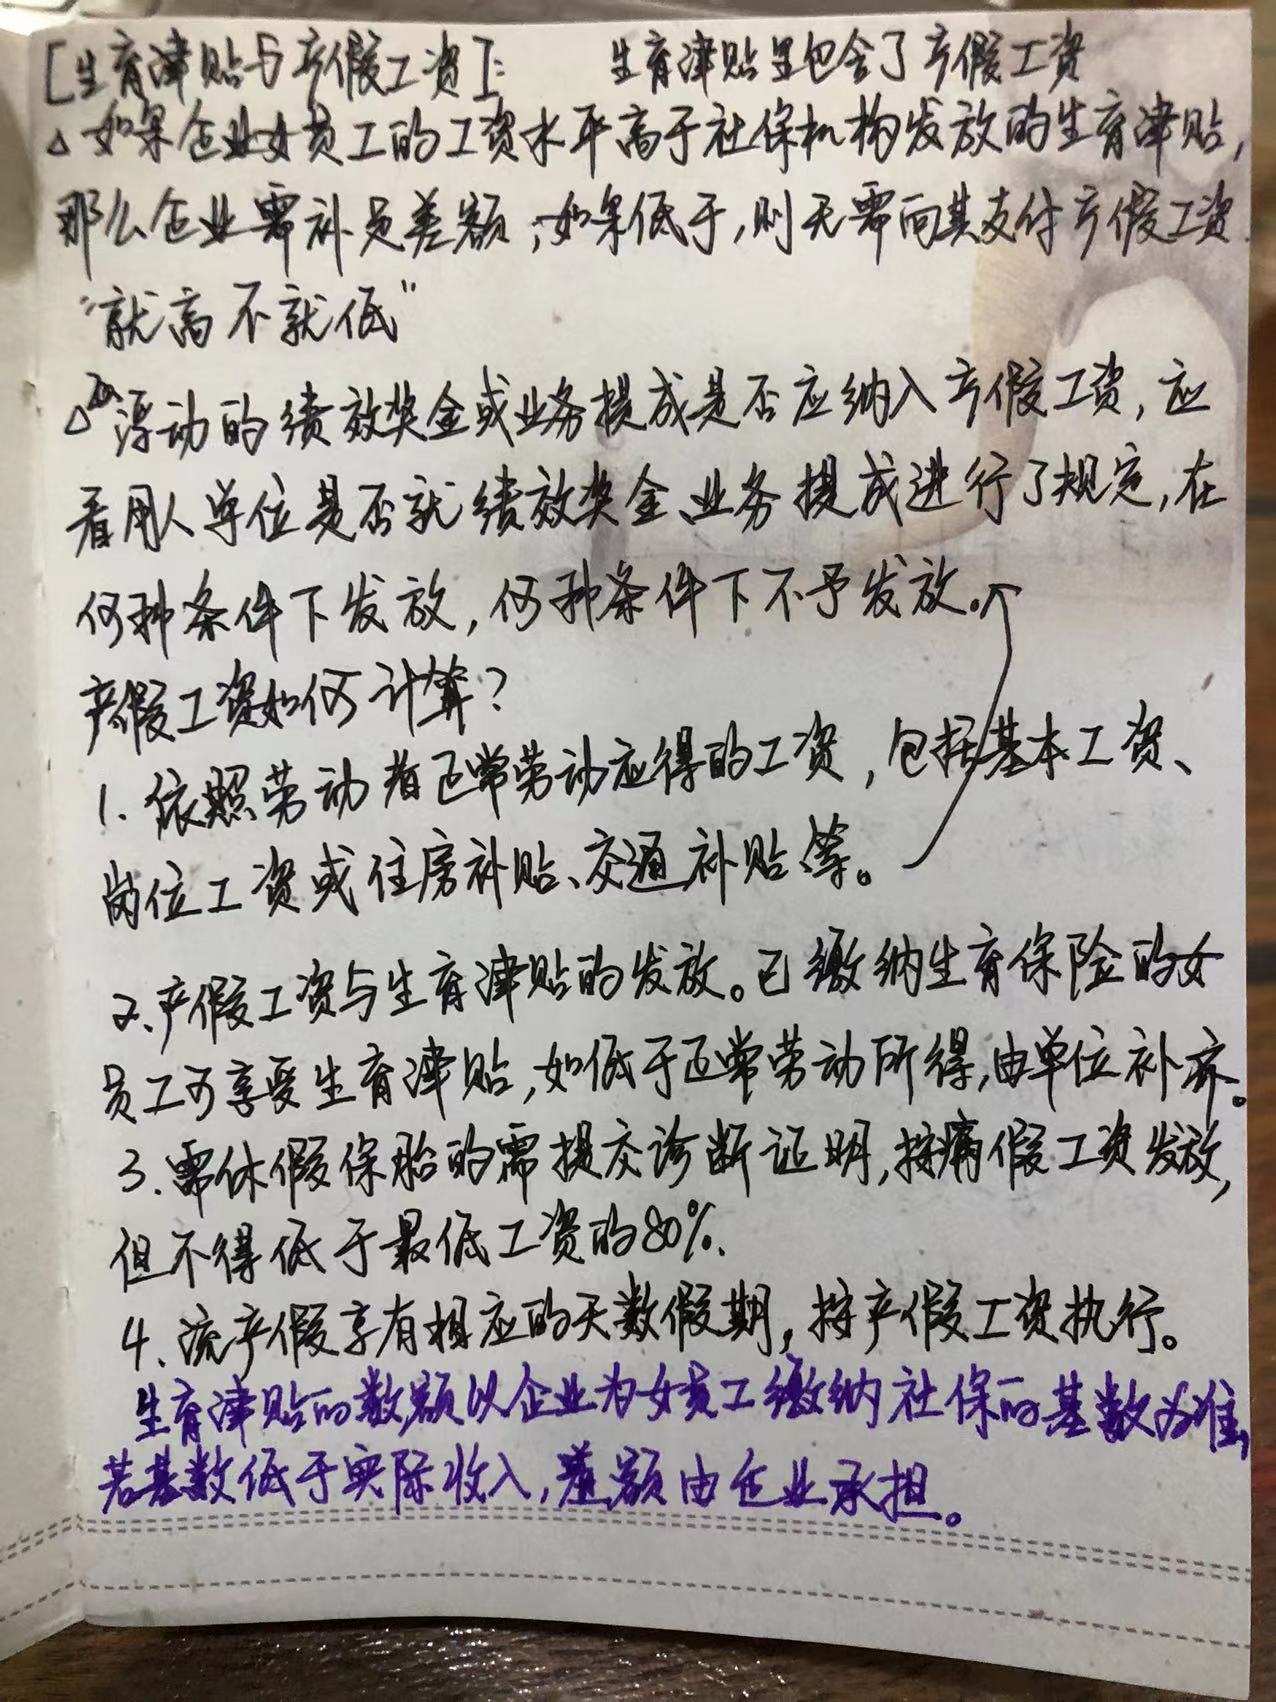 [生育津贴与产假工资]: 生育津贴里包含了产假工资
△如果企业女员工的工资水平高于社保机构发放的生育津贴,
那么企业需补足差额,如果低于,则无需向其支付产假工资.
“就高不就低”
△浮动的绩效奖金或业务提成是否应纳入产假工资,应
看用人单位是否就绩效奖金、业务提成进行了规定,在
何种条件下发放,何种条件下不予发放。
产假工资如何计算?
1.依照劳动者正常劳动应得的工资,包括基本工资、
岗位工资或住房补贴、交通补贴等。
2、产假工资与生育津贴的发放。已缴纳生育保险的女
员工可享受生育津贴,如低于正常劳动所得,由单位补齐。
3.需休假保胎的需提交诊断证明,按病假工资发放,
但不得低于最低工资的80%.
4、流产假享有相应的天数假期,按产假工资执行。
生育津贴的数额以企业为女员工缴纳社保的基数为准,
若基数低于实际收入,差额由企业承担。